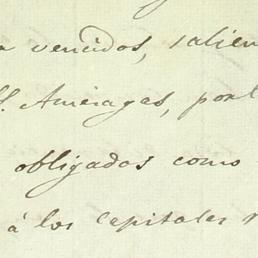 vencidos, salien
S. Amézagas, por l
obligados como
á los capitales